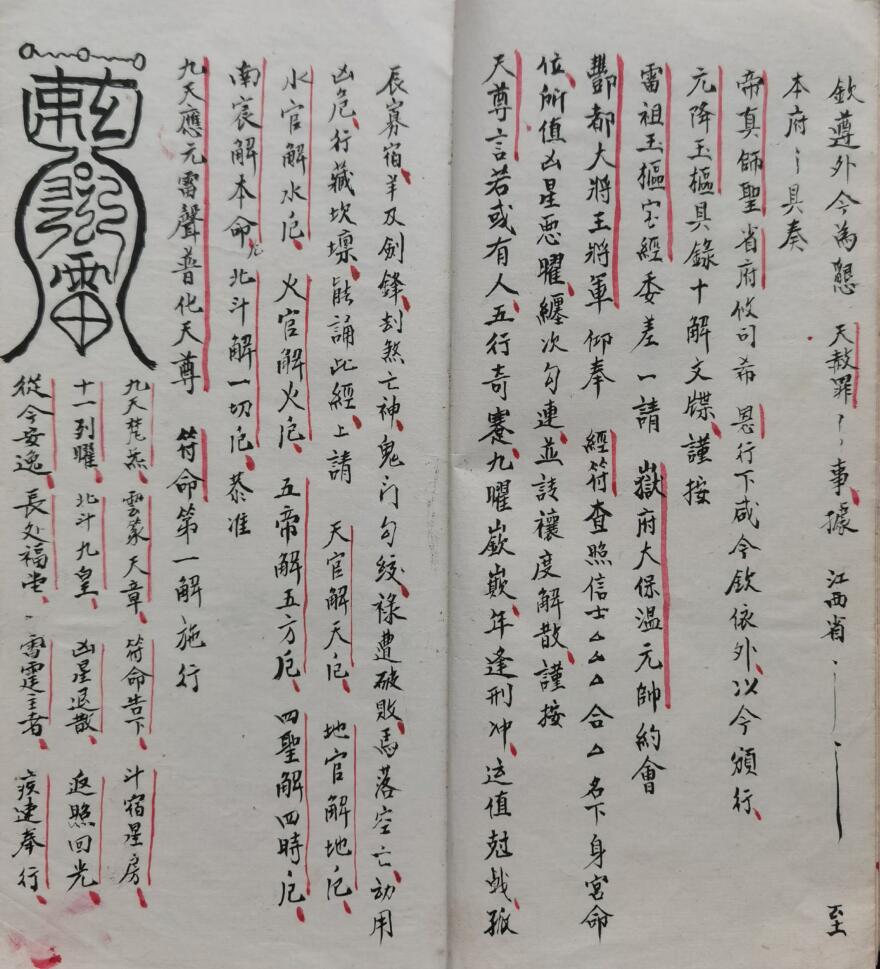 欽遵外今為懇 天赦罪〻事據 江西省〻 至
本府〻具奏
帝真師聖省府攸司希 恩行下咸令欽依外以今頒行
元降玉樞具錄十解文牒謹按
雷祖玉樞宝經委差一請 嶽府大保温元帥約會
酆都大將王將軍仰奉 經符查照信士△△△合△名下身宮命
位所值凶星悪曜纏次勾連並該禳度解散謹按
天尊言若或有人五行奇蹇九曜嶔巇年逢刑冲运值尅战孤
辰寡宿羊刃剑鋒刦煞亡神鬼门勾绞禄遭破敗馬落空亡动用
凶危行藏坎壈能誦此經上請 天官解天厄 地官解地厄
水官解水厄 火官解火厄 五帝解五方厄 四聖解四時厄
南宸解本命厄北斗解一切厄恭准
九天應元雷聲普化天尊 符命第一解施行
九天梵炁 雲篆天章 符命告下 斗宿星房
十一列曜 北斗九皇 凶星退散 返照回光
從今安逸 長处福堂 雷霆主者 疾速奉行